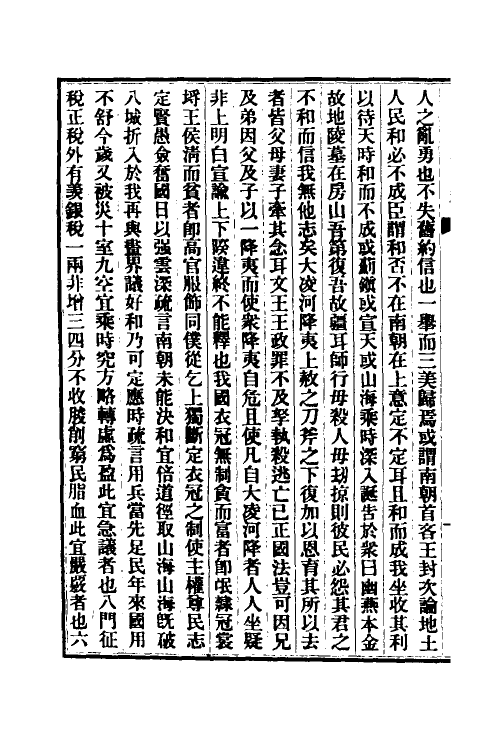 人之亂勇也不失舊約信也一舉而三美歸焉或謂南朝首吝王封次論地土
人民和必不成臣謂和否不在南朝在上意定不定耳且和而成我坐收其利
以待天時和而不成或薊鎮或宣大或山海乘時深入誕告於衆曰幽燕本金
故地陵墓在房山吾第復吾故疆耳師行毋殺人毋刦掠則彼民必怨其君之
不和而信我無他志矣大凌河降夷上赦之刀斧之下復加以恩育其所以去
者皆父母妻子牽其念耳文王王政罪不及孥執殺逃亡已正國法豈可因兄
及弟因父及子以一降夷而使衆降夷自危且使凡自大凌河降者人人坐疑
非上明白宣諭上下睽違終不能釋也我國衣冠無制貪而富者卽氓隸冠裳
埓王侯淸而貧者卽高官服飾同僕從乞上獨斷定衣冠之制使主權尊民志
定賢愚僉奮國日以强雲深疏言南朝未能決和宜倍道徑取山海山海旣破
八城折入於我再與盡界議好和乃可定應時疏言用兵當先足民年來國用
不舒今歲又被災十室九空宜乘時究方略轉虛爲盈此宜急議者也八門征
稅正稅外有羨銀稅一兩非增三四分不收朘削窮民脂血此宜嚴覈者也六